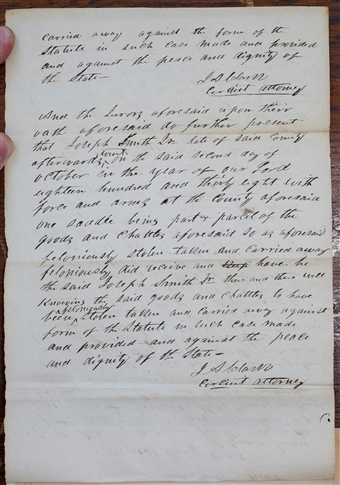 carried away against the form of the
Statute in such case made and provided
and against the peace and dignity of
the State—
J S Clark
Cercuit attorney
And the Jurors aforesaid upon their
oath aforesaid do further present
that Joseph Smith Jr. late of said County
afterwards, on the said second day of
October in the year of our Lord
eighteen hundred and thirty eight with
force and arms at the County aforesaid
one saddle being part & parcel of the
goods and Chattles aforesaid so as aforesaid
feloniously stolen taken and carried away
feloniously did receive and have he
the said Joseph Smith Jr then and there well
Knowing the said goods and Chattles to have
been feloniously stolen taken and carried away against
form of the Statute in such case made
and provided and against the peace
and dignity of the State—
J S Clark
Cercuit attorney